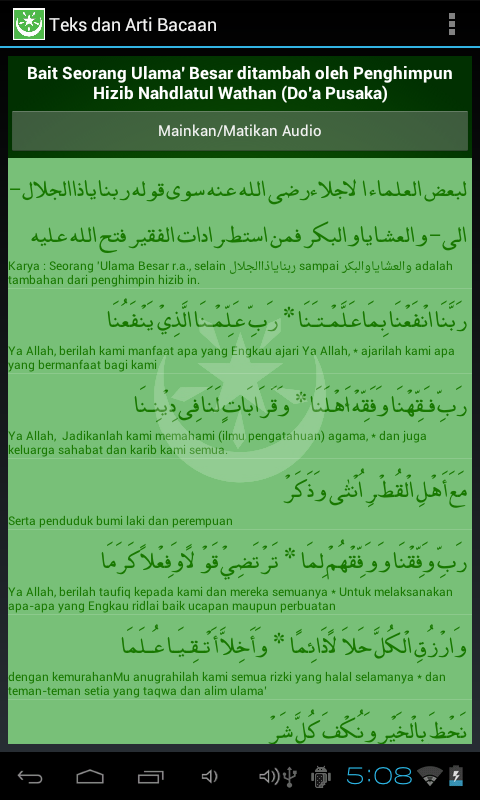 Teks dan Arti Bacaan
Bait Seorang Ulama' Besar ditambah oleh Penghimpun
Hizib Nahdlatul Wathan (Do'a Pusaka)
Mainkan/Matikan Audio
لبعض العلماءا الاجلاء رضى الله عنه سوى قوله ربنا ياذاالجلال–
الى– والعشايا والبكر فمن استطرادات الفقير فتح الله عليه
Karya : Seorang 'Ulama Besar r.a., selain ربنا ياذاالجلال sampai والعشايا والبكر adalah
tambahan dari penghimpin hizib in.
رَبَّنَا انْفَعْنَا بِمَا عَلَّمْتَنَا * رَبِّ عَلِّمْنَا الَّذِيْ يَنْفَعُنَا
Ya Allah, berilah kami manfaat apa yang Engkau ajari Ya Allah, * ajarilah kami apa
yang bermanfaat bagi kami
رَبِّ فَقِّهْنَا وَفَقِّهْ اَهْلَنَا * وَقَرَابَاتٍ لَنَا فِى دِيْنِنَا
Ya Allah, Jadikanlah kami memahami (ilmu pengatahuan) agama, * dan juga
keluarga sahabat dan karib kami semua.
مَعَ اَهْلِ الْقُطْرِ اُنْثٰى وَذَكَرْ
Serta penduduk bumi laki dan perempuan
رَبِّ وَفِّقْنَا وَوَفِّقْهُمْ لِمَا * تَرْتَضِيْ قَوْلًا وَفِعْلًا كَرَمَا
Ya Allah, berilah taufiq kepada kami dan mereka semuanya * Untuk melaksanakan
apa-apa yang Engkau ridlai baik ucapan maupun perbuatan
وَارْزُقِ الْكُلَّ حَلَالًا دَائِمًا * وَأَخِلَّاَ أَتْقِيَاءً عُلَمَا
dengan kemurahanMu anugrahilah kami semua rizki yang halal selamanya * dan
teman-teman setia yang taqwa dan alim ulama'
نَحْظَ بِالْخَيْرِ وَنُكْفَ كُلَّ شَرْ
5:08